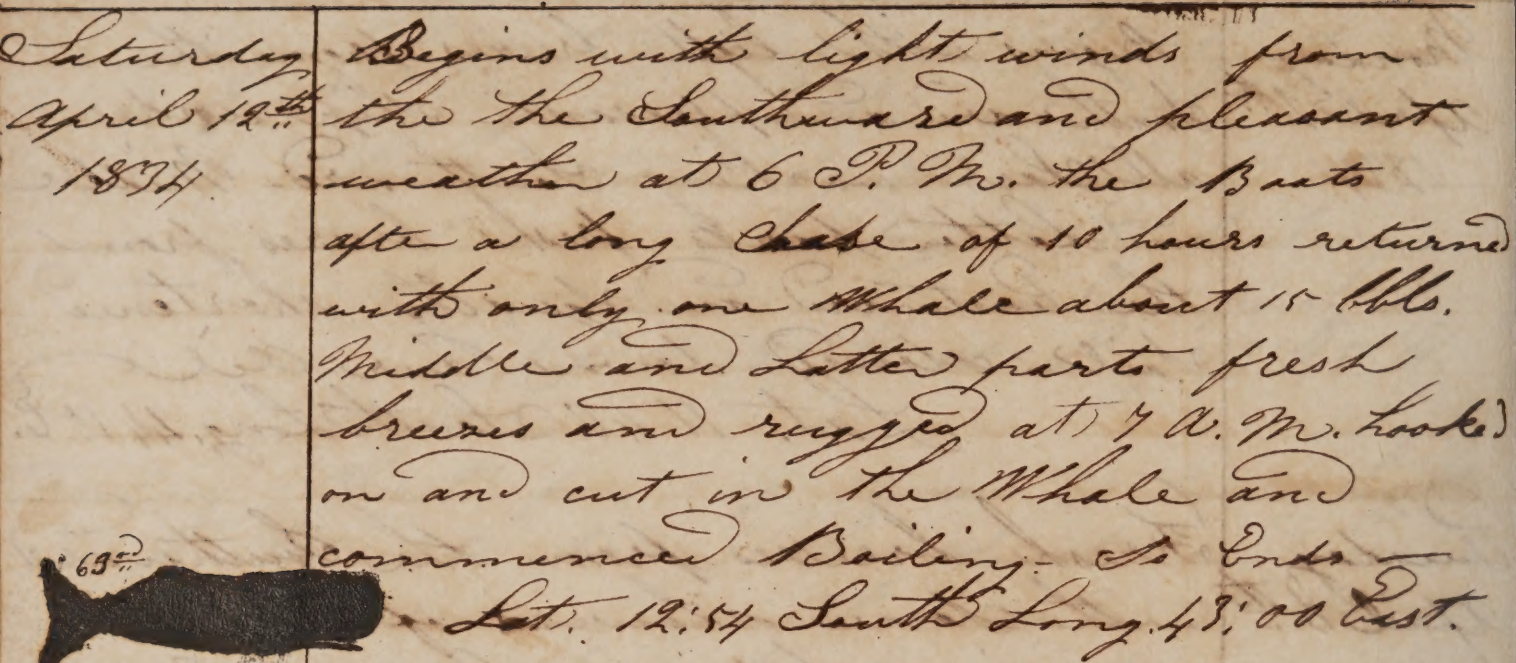 Saturday
April 12th
1834
Begins with light winds from
the the Southward and pleasant
weather at 6 P. M. the Boats
after a long Chase of 10 hours returned
with only one Whale about 15 bbls.
Middle and Latter parts fresh
breezes and rugged at 7 A. M. hooked
on and cut in the Whale and
commenced Boiling - So Ends —
Lat. 12:54 South Long. 43:00 East.
63rd